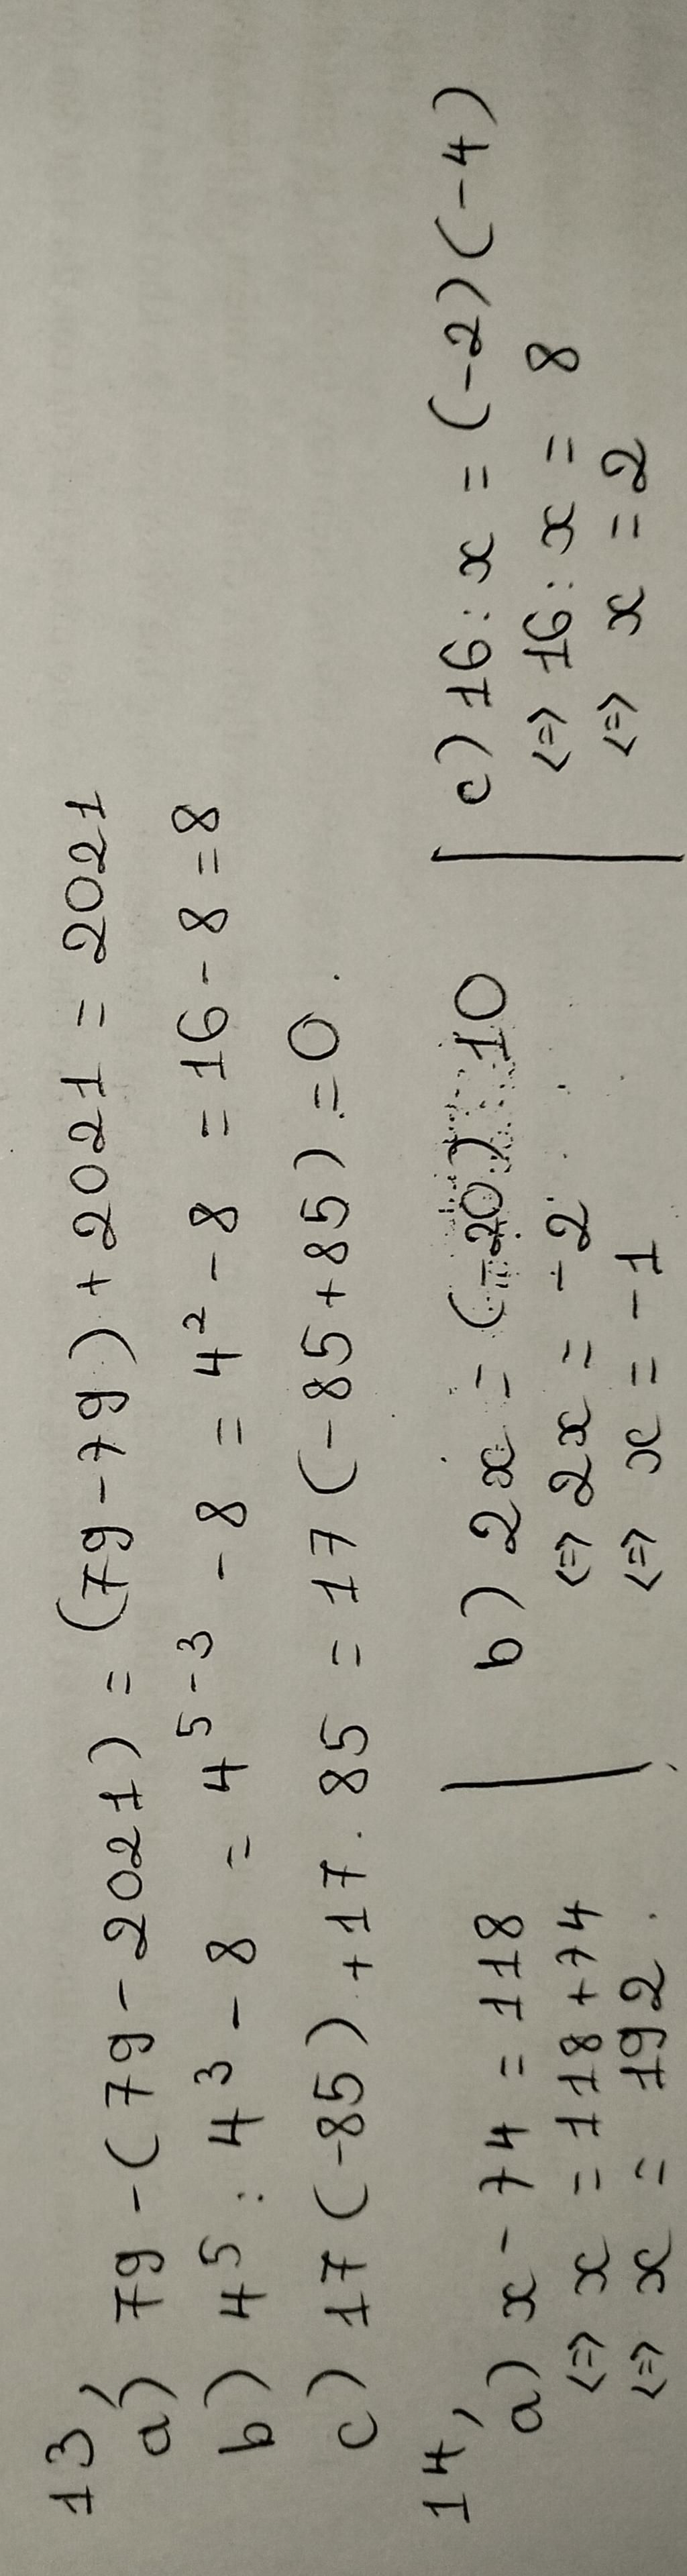 13,
a) 79 - (79 - 2021) = (79 - 79) + 2021 = 2021
b) 4⁵ : 4³ - 8 = 4⁵⁻³ - 8 = 4² - 8 = 16 - 8 = 8
c) 17 (-85) + 17 . 85 = 17 (-85 + 85) = 0.
14,
a) x - 74 = 118
⇔ x = 118 + 74
⇔ x = 192.
b) 2x = (-20) 10
⇔ 2x = -2
⇔ x = -1
c) 16 : x = (-2) (-4)
⇔ 16 : x = 8
⇔ x = 2